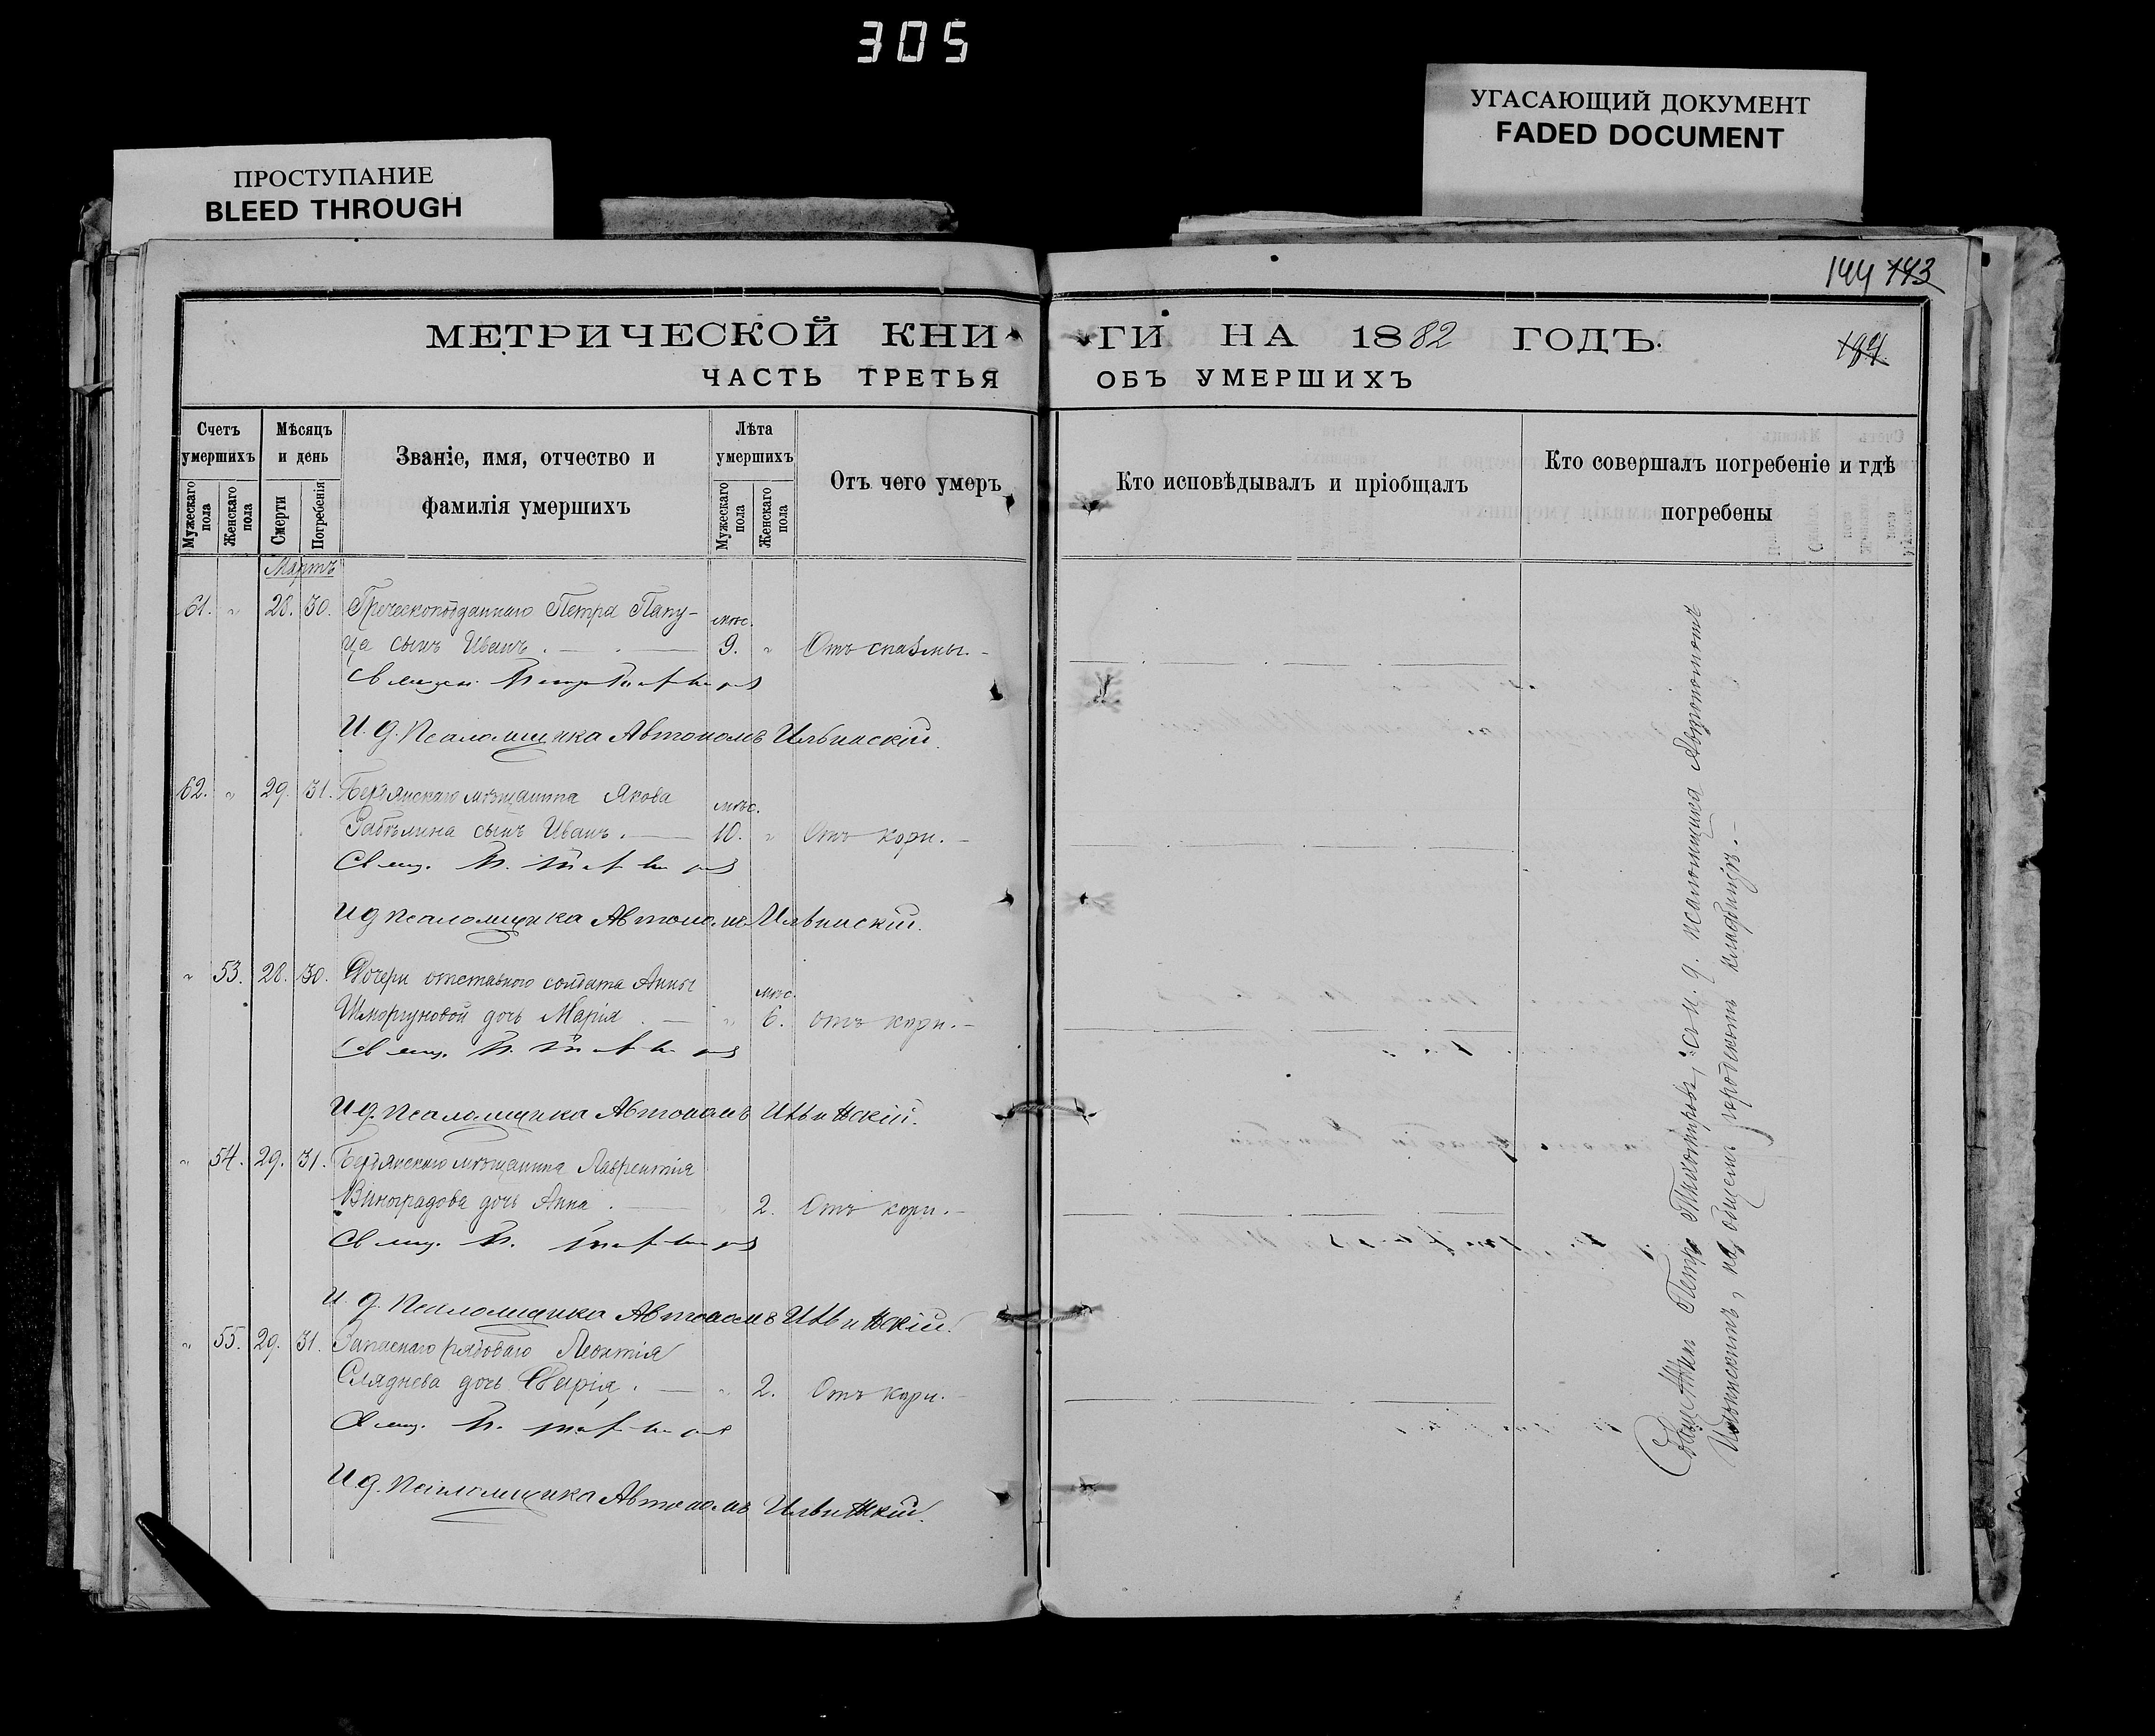 305
УГАСАЮЩИЙ ДОКУМЕНТ
FADED DOCUMENT
ПРОСТУПАНИЕ
BLEED THROUGH
144 143
МЕТРИЧЕСКОЙ КНИ
ГИ НА 1882 ГОДЪ.
194.
ЧАСТЬ ТРЕТЬЯ
ОБЪ УМЕРШИХЪ
Счетъ умершихъ
Мужескаго пола
Женскаго пола
Мѣсяцъ и день
Смерти
Погребенія
Званіе, имя, отчество и
фамилія умершихъ
Лѣта умершихъ
Мужескаго пола
Женскаго пола
Отъ чего умеръ
Кто исповѣдывалъ и пріобщалъ
Кто совершалъ погребеніе и гдѣ
погребены
Мартъ
61. " 28. 30. Греческоподданнаго Петра Папу-
мѣс.
ца сынъ Иванъ. 9. " Отъ спазмы.
Священ. Петръ Тихомировъ
И. д. Псаломщика Автономъ Ильинскій.
62. " 29. 31. Бердянскаго мѣщанина Якова
мѣс.
Забѣлина сынъ Иванъ. 10. " Отъ кори.
Свящ. П. Тихомировъ
И д псаломщика Автономъ Ильинскій.
" 53. 28. 30. Дочери отставного солдата Анны
мѣс.
Шморгуновой дочь Марія. " 6. отъ кори.
Свящ. П. Тихомировъ
И д. псаломщика Автономъ Ильинскій.
" 54. 29. 31. Бердянскаго мѣщанина Лаврентія
Виноградова дочь Анна. " 2. Отъ кори.
Свящ. П. Тихомировъ
И. д. Псаломщика Автономъ Ильинскій.
" 55. 29. 31. Запаснаго рядоваго Леонтія
Сляднева дочь Дарія. " 2. Отъ кори.
Свящ. П. Тихомировъ
И д. Псаломщика Автономъ Ильинскій.
Священникъ Петръ Тихомировъ, съ и. д. псаломщика Автономомъ
Ильинскимъ, на общемъ городскомъ кладбищѣ.